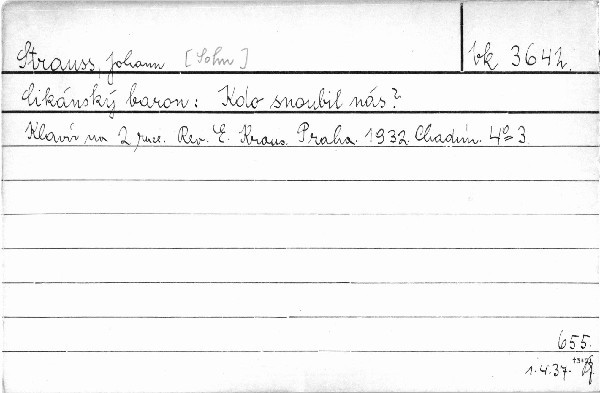 Strauss, Johann [Sohn] vk 3642.
Cikánský baron: Kdo snoubil nás?
Klavír na 2 ruce. Rev. E. Kraus. Praha. 1932. Chadim. 4º 3
655.
1.4.37.